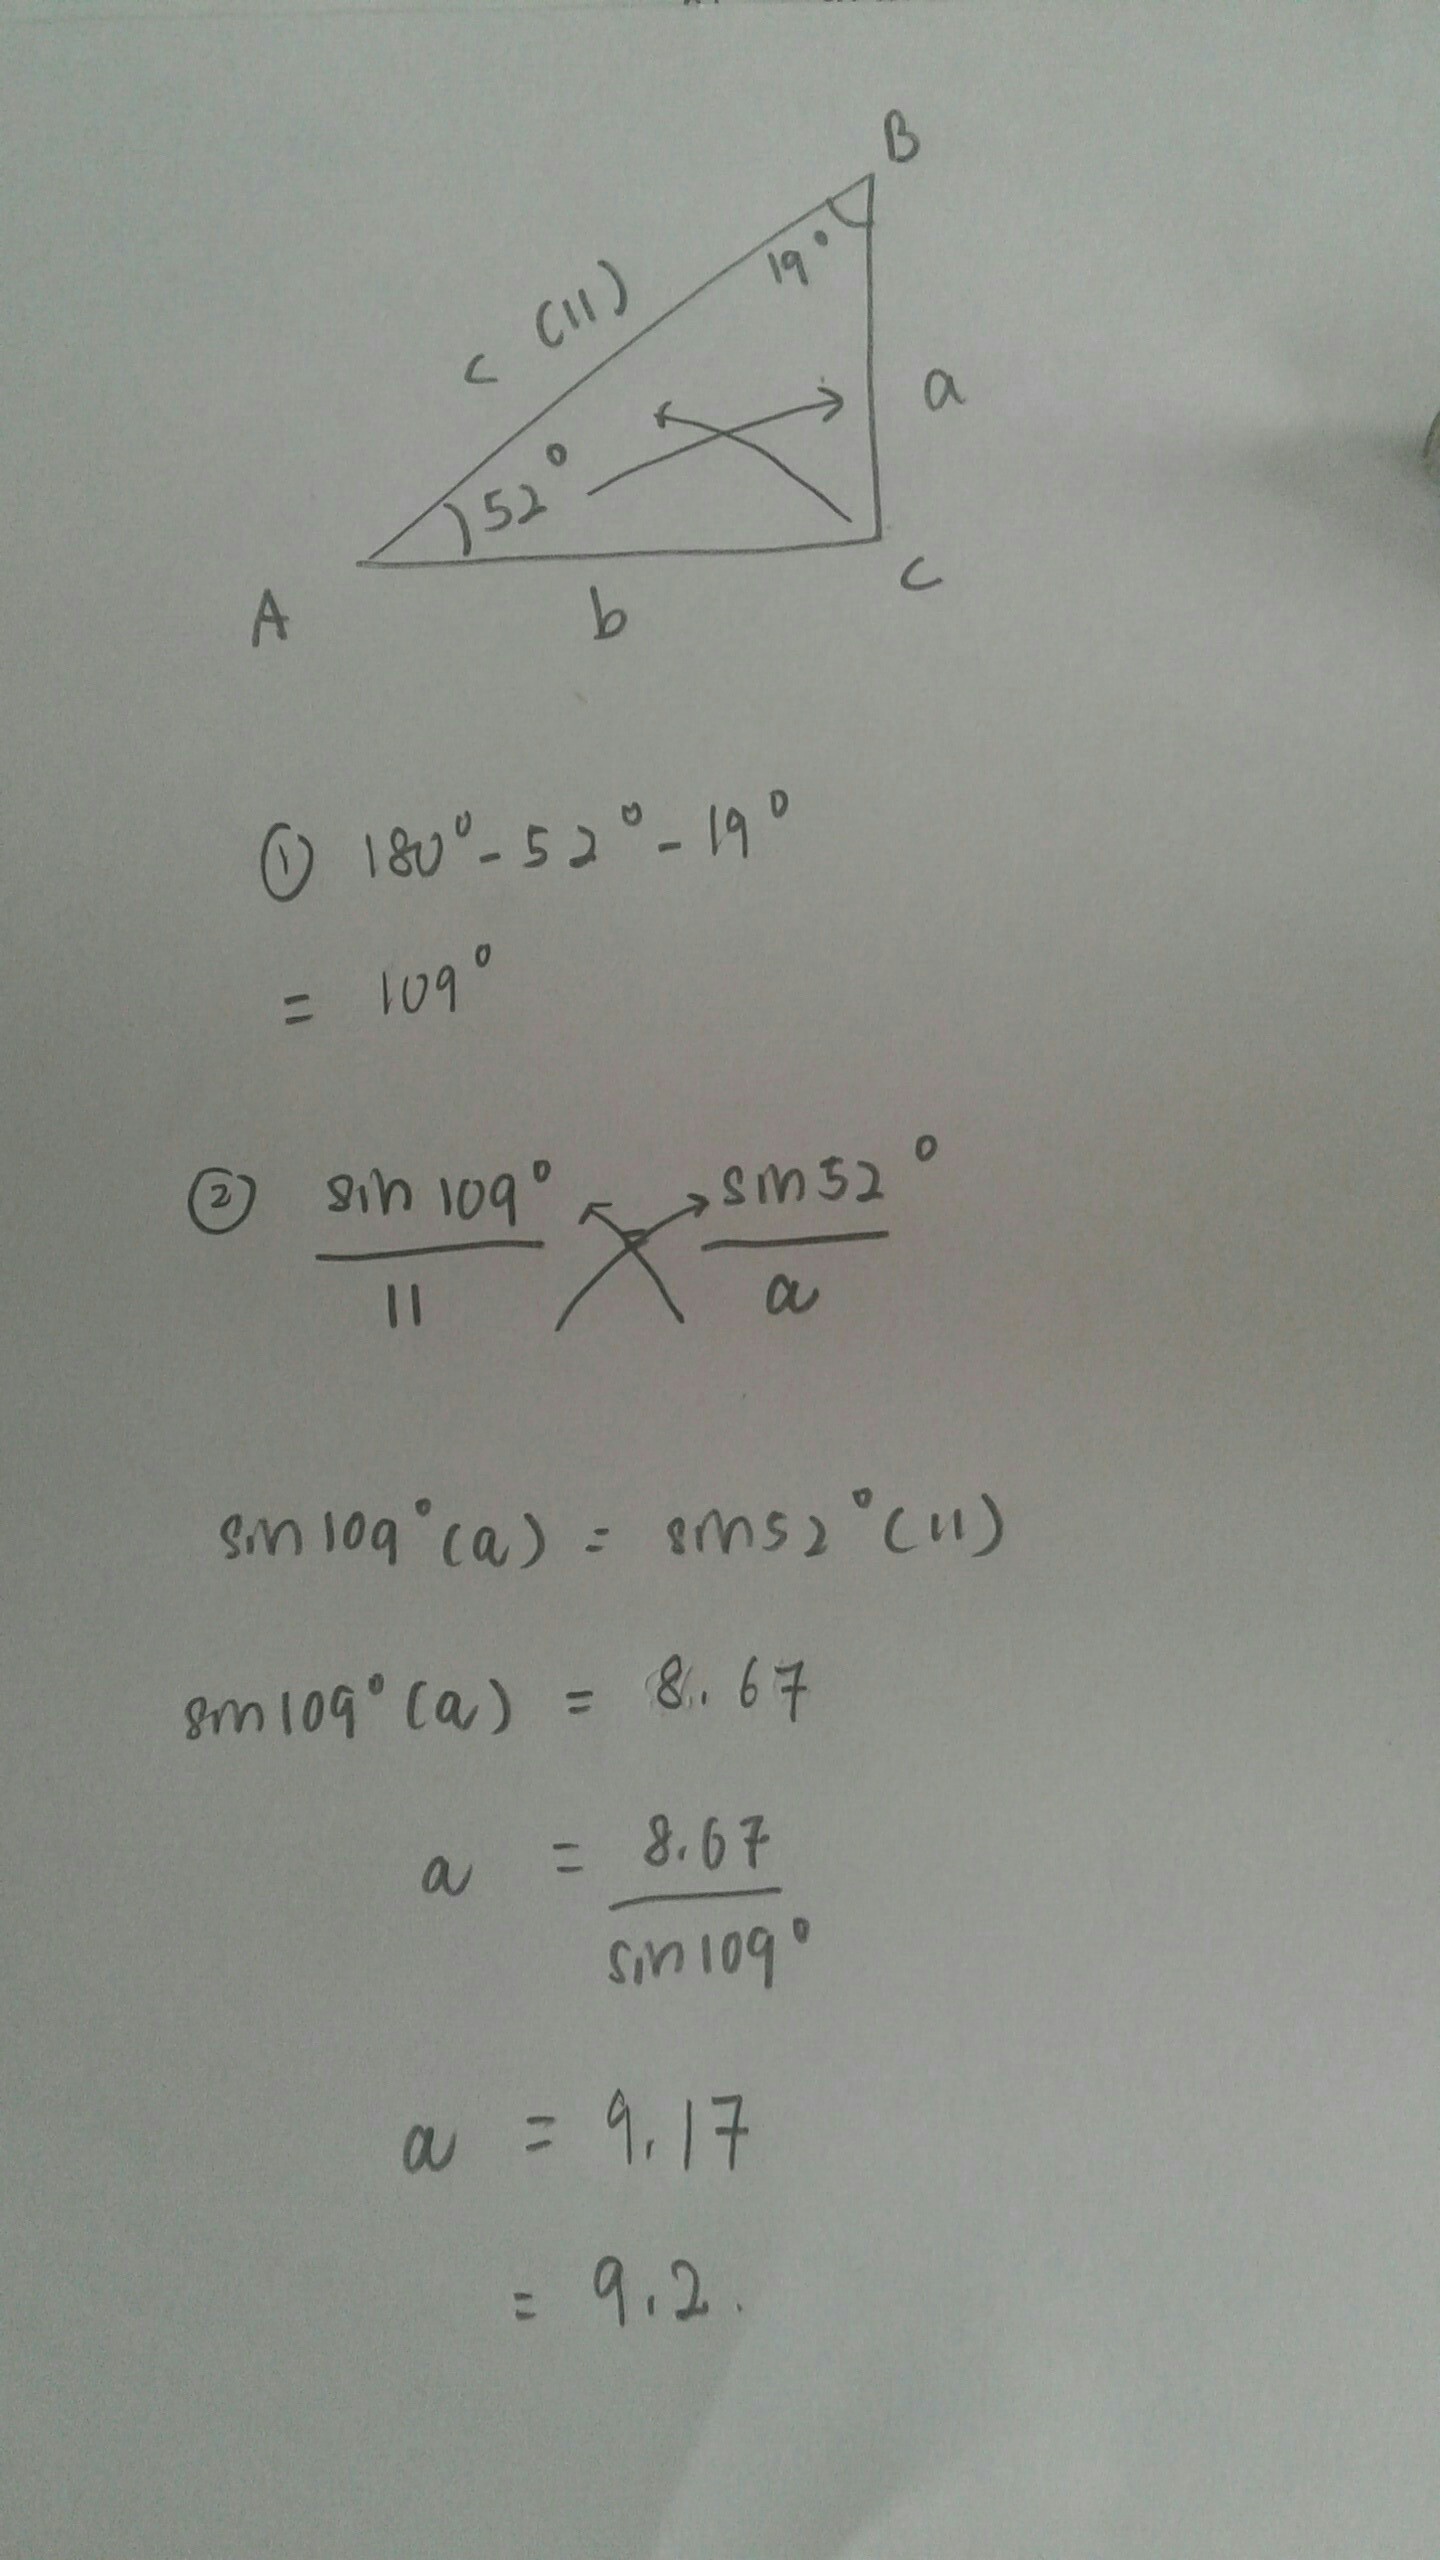 B
19°
c (11)
a
52°
A
b
C
① 180° - 52° - 19°
= 109°
② sin 109° sin 52°
11 a
sin 109° (a) = sin 52° (11)
sin 109° (a) = 8.67
a = 8.67
sin 109°
a = 9.17
= 9.2.